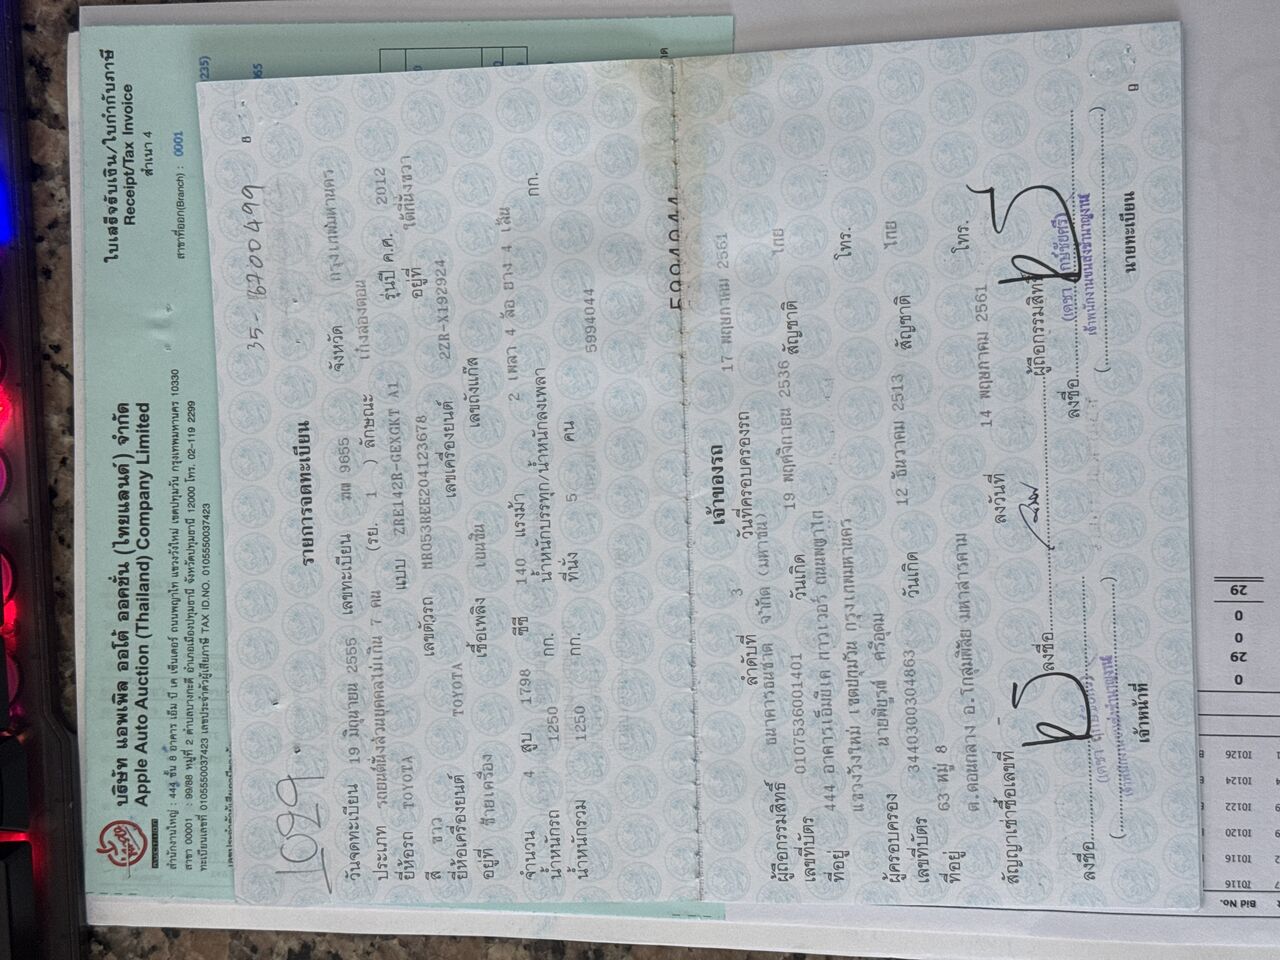 บริษัท แอพเพิล ออโต้ ออคชั่น (ไทยแลนด์) จำกัด
Apple Auto Auction (Thailand) Company Limited
สำนักงานใหญ่ : 444 ชั้น 8 อาคาร เอ็ม บี เค เซ็นเตอร์ ถนนพญาไท แขวงวังใหม่ เขตปทุมวัน กรุงเทพมหานคร 10330
สาขา 00001 : 99/88 หมู่ที่ 2 ตำบลบางกะดี อำเภอเมืองปทุมธานี จังหวัดปทุมธานี 12000 โทร. 02-119 2299
ทะเบียนเลขที่ 0105550037423 เลขประจำตัวผู้เสียภาษี TAX ID.NO. 0105550037423
ใบเสร็จรับเงิน/ใบกำกับภาษี
Receipt/Tax Invoice
สำเนา 4
สาขาที่ออก(Branch) : 0001
235)
65
1029
35-6700499
8
รายการจดทะเบียน
วันจดทะเบียน 19 มิถุนายน 2555 เลขทะเบียน 9655 จังหวัด กรุงเทพมหานคร
ประเภท รถยนต์นั่งส่วนบุคคลไม่เกิน 7 คน (รย. 1 ) ลักษณะ เก๋งสองตอน
ยี่ห้อรถ TOYOTA แบบ ZRE142R-GEXGKT A1 รุ่นปี ค.ศ. 2012
สี ขาว เลขตัวรถ MR053REE204123678 อยู่ที่ ใต้ที่นั่งขวา
ยี่ห้อเครื่องยนต์ TOYOTA เลขเครื่องยนต์ 2ZR-X192924
อยู่ที่ ซ้ายเครื่อง เชื้อเพลิง เบนซิน เลขถังแก๊ส
จำนวน 4 สูบ 1798 ซีซี 140 แรงม้า 2 เพลา 4 ล้อ ยาง 4 เส้น
น้ำหนักรถ 1250 กก. น้ำหนักบรรทุก/น้ำหนักลงเพลา กก.
น้ำหนักรวม 1250 กก. ที่นั่ง 5 คน 5994044
5994044
เจ้าของรถ
ลำดับที่ 3 วันที่ครอบครองรถ 17 พฤษภาคม 2561
ผู้ถือกรรมสิทธิ์ ธนาคารธนชาต จำกัด (มหาชน)
เลขที่บัตร 0107536001401 วันเกิด 19 พฤศจิกายน 2536 สัญชาติ ไทย
ที่อยู่ 444 อาคารเอ็มบีเค ทาวเวอร์ ถนนพญาไท โทร.
แขวงวังใหม่ เขตปทุมวัน กรุงเทพมหานคร
ผู้ครอบครอง นายพิบูรณ์ ศรีอุดม
เลขที่บัตร 3440300304863 วันเกิด 12 ธันวาคม 2513 สัญชาติ ไทย
ที่อยู่ 63 หมู่ 8 โทร.
ต.ดอนกลาง อ.โกสุมพิสัย มหาสารคาม
สัญญาเช่าซื้อเลขที่ ลงวันที่ 14 พฤษภาคม 2561
ลงชื่อ ผู้ถือกรรมสิทธิ์
ลงชื่อ ลงชื่อ
เจ้าพนักงานขนส่งชำนาญงาน
เจ้าหน้าที่ นายทะเบียน
9
Bid No.
10116
10116
10120
10122
10124
10126
0
29
0
0
29